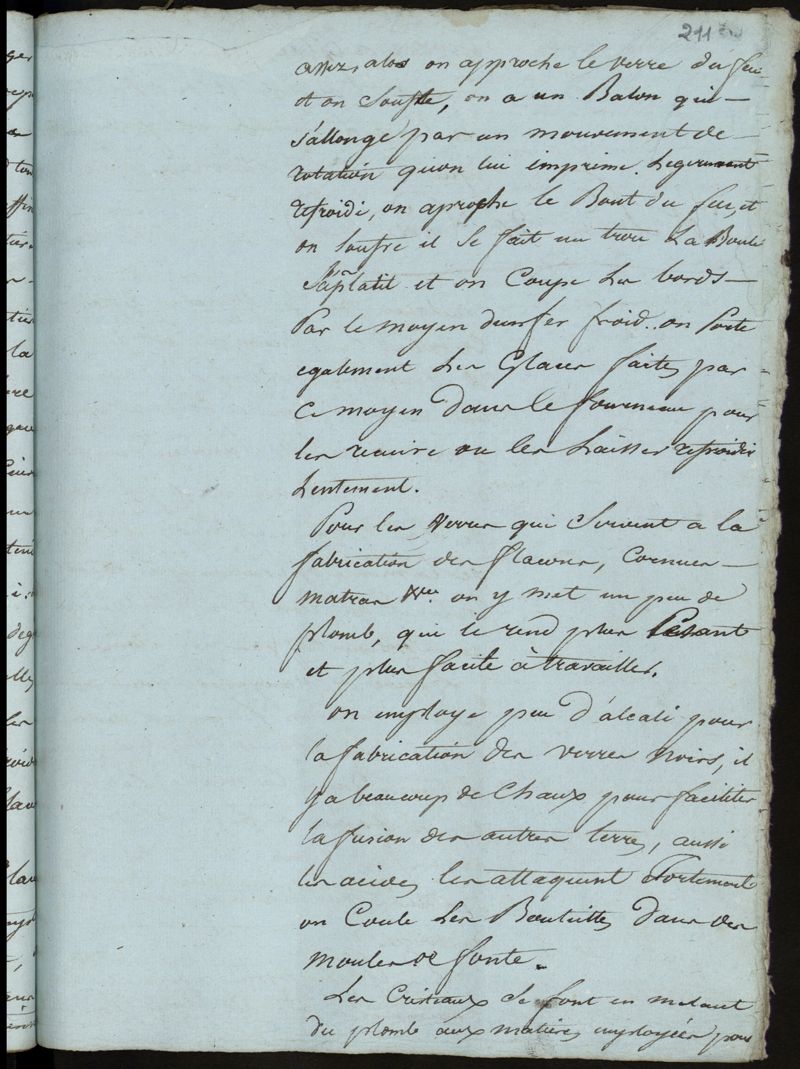 211
assez, alors on approche le verre du feu
et on soufle, on a un Balon qui
s'allonge par un mouvement de
rotation qu'on lui imprime. Legerement
refroidi, on aproche le Bout du feu, et
on soufre il se fait un trou La Boule
S'aplatit et on Coupe Les bords
Par le moyen d'un fer froid. on Porte
egalement Les Glaces faites par
ce moyen dans le fourneau pour
les recuire ou les Laisser refroidir
Lentement.
Pour les verres qui Servent a la
fabrication des flacons, Cornues
matras &ca. on y met un peu de
plomb, qui le rend plus Pesant
et plus facile à travailler.
on employe peu d'alcali pour
la fabrication des verres noirs, il
y a beaucoup de Chaux pour faciliter
la fusion des autres terres, aussi
les acides les attaquent Fortement
on Coule Les Bouteilles dans des
moules de fonte.
Les Cristaux Se font en metant
du plomb aux matieres employées pour